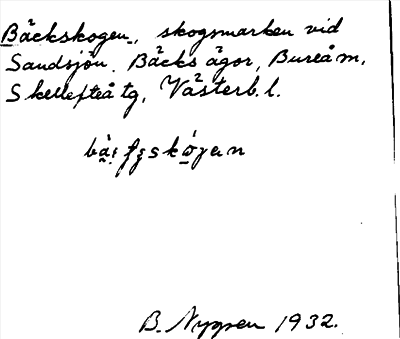 Bäckskogen, skogsmarken vid
Sandsjön. Bäcks ägor, Bureå m,
Skellefteå tg, Västerb. l.
B. Nygren 1932.